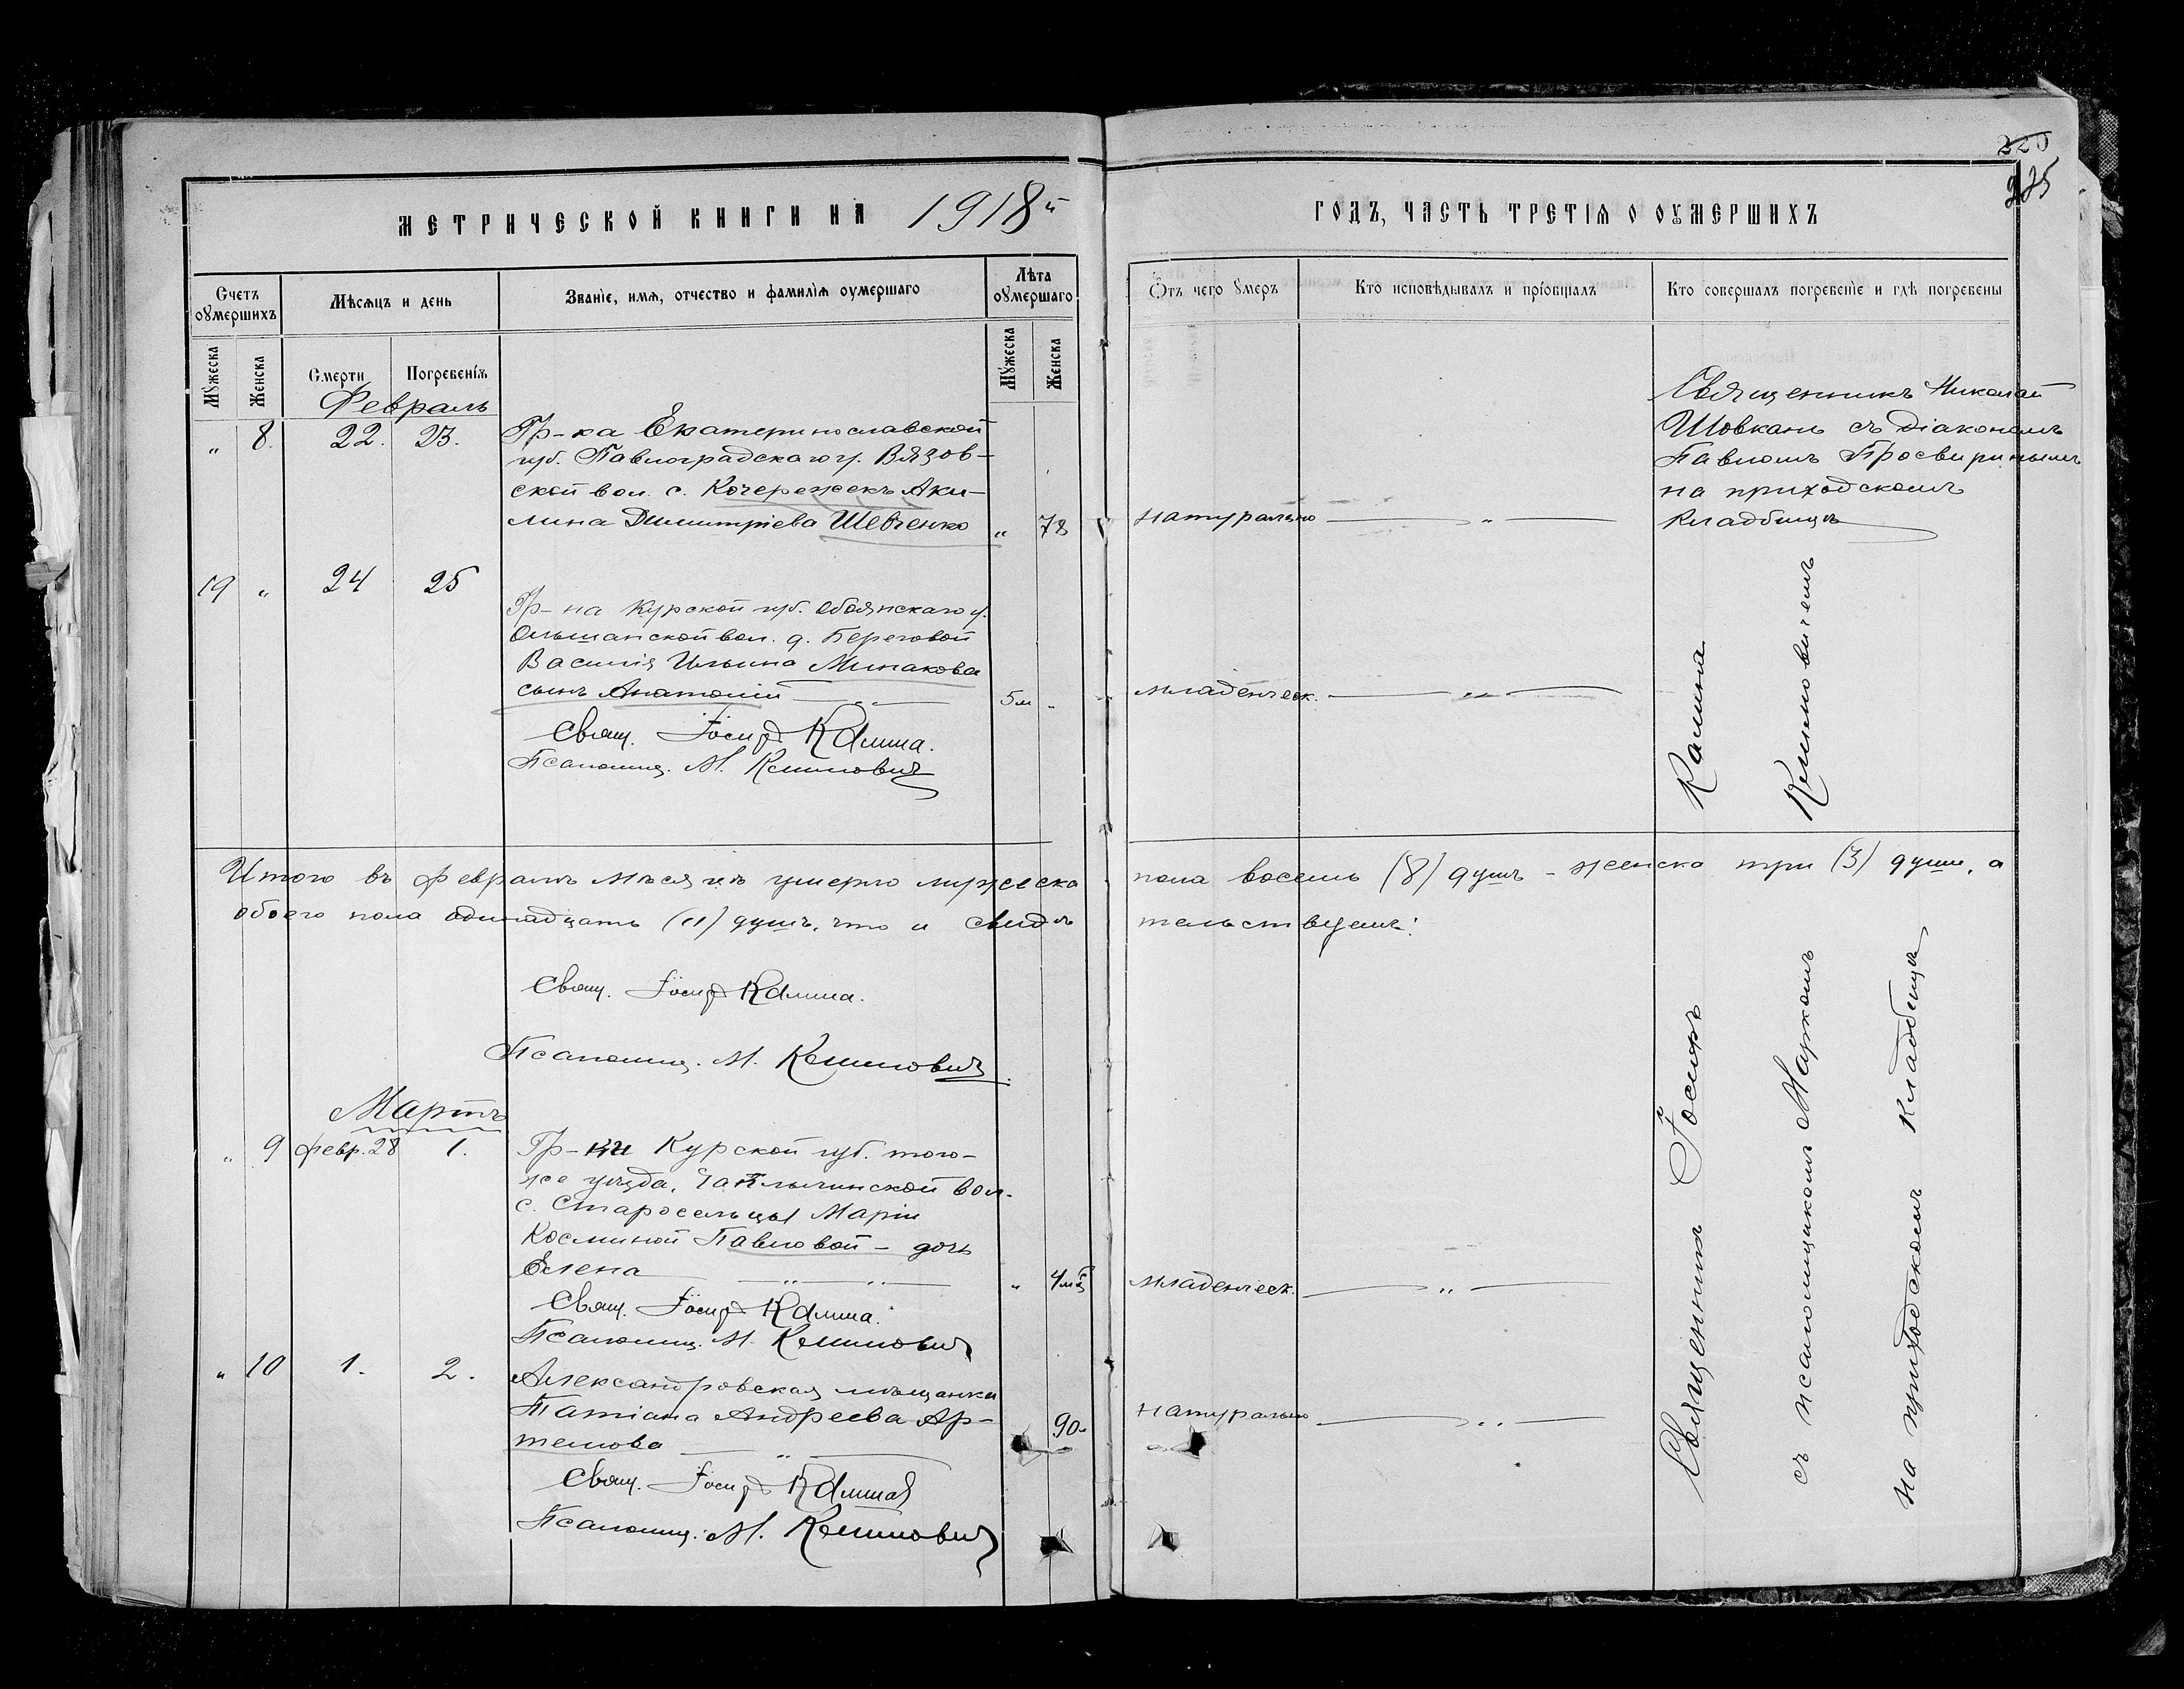 МЕТРИЧЕСКОЙ КНИГИ НА 1918й
ГОДЪ, ЧАСТЬ ТРЕТІѦ О ОУМЕРШИХЪ
220
225
Счетъ оумершихъ
Мѣсѧцъ и день
Званіе, имѧ, отчество и фамиліѧ оумершаго
Лѣта оумершаго
Отъ чего умеръ
Кто исповѣдывалъ и пріобщалъ
Кто совершалъ погребеніе и гдѣ погребены
Мужеска
Женска
Смерти
Погребеніѧ
Мужеска
Женска
Февраль
„ 8. 22. 23.
Гр-ка Екатеринославской
губ. Павлоградскаго у. Вязов-
ской вол. с. Кочережекъ Аки-
лина Димитріева Шевченко „ 78
натурально — „ —
Священникъ Николай
Шовкань съ діакономъ
Павломъ Просвиринымъ
на приходскомъ
кладбищѣ
19 „ 24 25
Гр-на Курской губ. Обоянскаго у.
Ольшанской вол. д. Береговой
Василія Ильина Минакова
сынъ Анатолій — „ — 5м „
младенческ. — „ —
Свящ. Іосифъ Калина.
Псаломщ. М. Климовичъ
Итого въ февралѣ мѣсяцѣ умерло мужеска пола восемь (8) душъ - женска три (3) души, а
обоего пола одинадцать (11) душъ, что и свидѣтельствуемъ:
Свящ. Іосифъ Калина.
Псаломщ. М. Климовичъ.
Мартъ
„ 9 февр. 28 1.
Гр-ки Курской губ. того-
же уѣзда, вол.
с. Старосельцы Маріи
Косминой Павловой - дочь
Елена — „ — „ — „ 4 мѣс
младенческ. — „ —
Свящ. Іосифъ Калина.
Псаломщ. М. Климовичъ
„ 10 1. 2.
Александровская мѣщанка
Татіана Андреева Ар-
темова — „ — 90.
натурально — „ —
Свящ. Іосифъ Калина
Псаломщ. М. Климовичъ
Священникъ Іосифъ Калина
съ псаломщикомъ Маркомъ Климовичемъ
на приходскомъ кладбищѣ